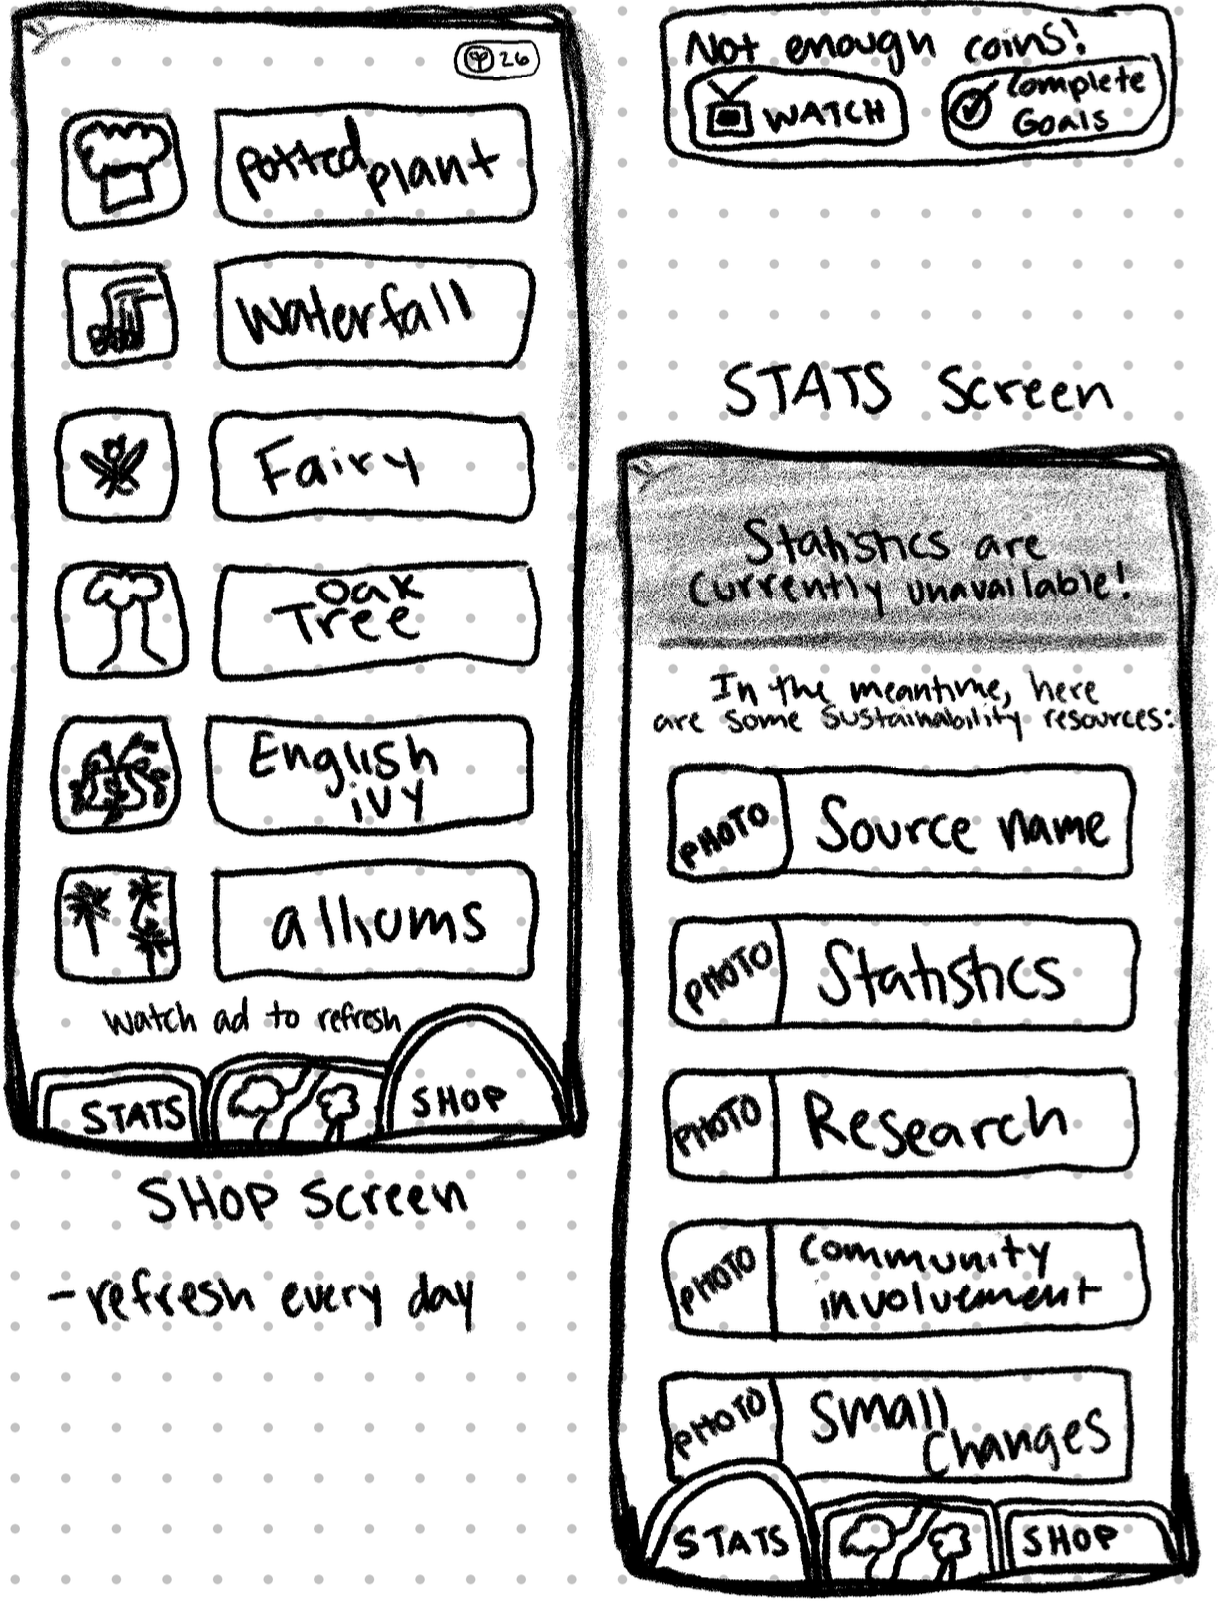 26
Potted plant
Waterfall
Fairy
Oak
Tree
English
ivy
alliums
Watch ad to refresh
STATS
SHOP
SHOP Screen
- refresh every day
Not enough coins!
WATCH
Complete
Goals
STATS Screen
Statistics are
currently unavailable!
In the meantime, here
are some sustainability resources:
PHOTO
Source name
PHOTO
Statistics
PHOTO
Research
PHOTO
Community
involvement
PHOTO
Small
Changes
STATS
SHOP